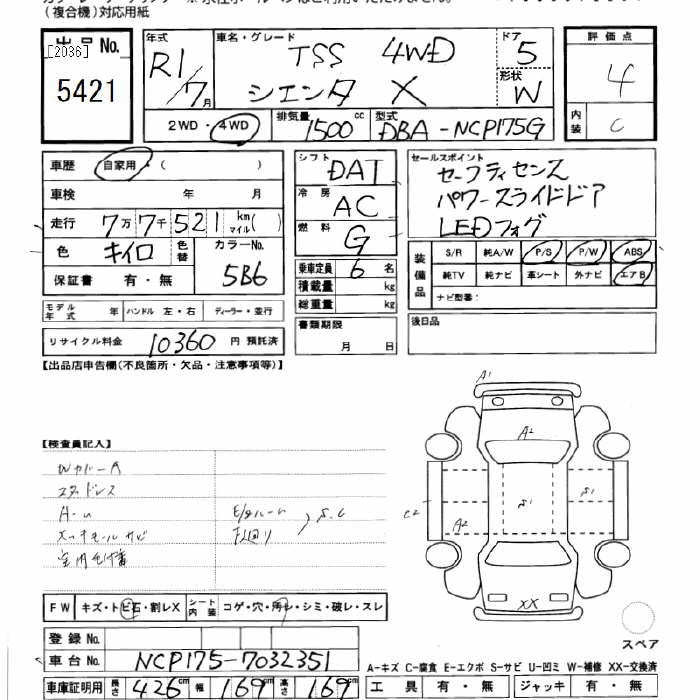 (複合機)対応用紙
出品No. [2036] 5421
年式 R1/7月
車名・グレード TSS 4WD シエンタ X
ドア 5
形状 W
評価点 4
内装 C
2WD・4WD 排気量 1500cc 型式 DBA-NCP175G
車歴 自家用・( )
車検 年 月
走行 7万7千521km マイル( )
色 キイロ 色替 カラーNo. 5B6
保証書 有・無
モデル年式 年 ハンドル 左・右 ディーラー・並行
リサイクル料金 10360 円 預託済
シフト DAT
冷房 AC
燃料 G
乗車定員 6 名
積載量 kg
総重量 kg
書類期限 月 日
セールスポイント
セーフティセンス
パワースライドドア
LEDフォグ
装備品 S/R 純A/W P/S P/W ABS
純TV 純ナビ 革シート 外ナビ エアB
ナビ型番:
後日品
【出品店申告欄(不良箇所・欠品・注意事項等)】
【検査員記入】
Wカバー A
スタッドレス
下回り S.C
A1
A2
S1
S1
C2
A2
XX
FW キズ・トビ石・割レX シート内装 コゲ・穴・汚レ・シミ・破レ・スレ
スペア
登録No.
車台No. NCP175-7032351
A-キズ C-腐食 E-エクボ S-サビ U-凹ミ W-補修 XX-交換済
車庫証明用 長さ 426cm 幅 169cm 高さ 169cm
工具 有・無 ジャッキ 有・無